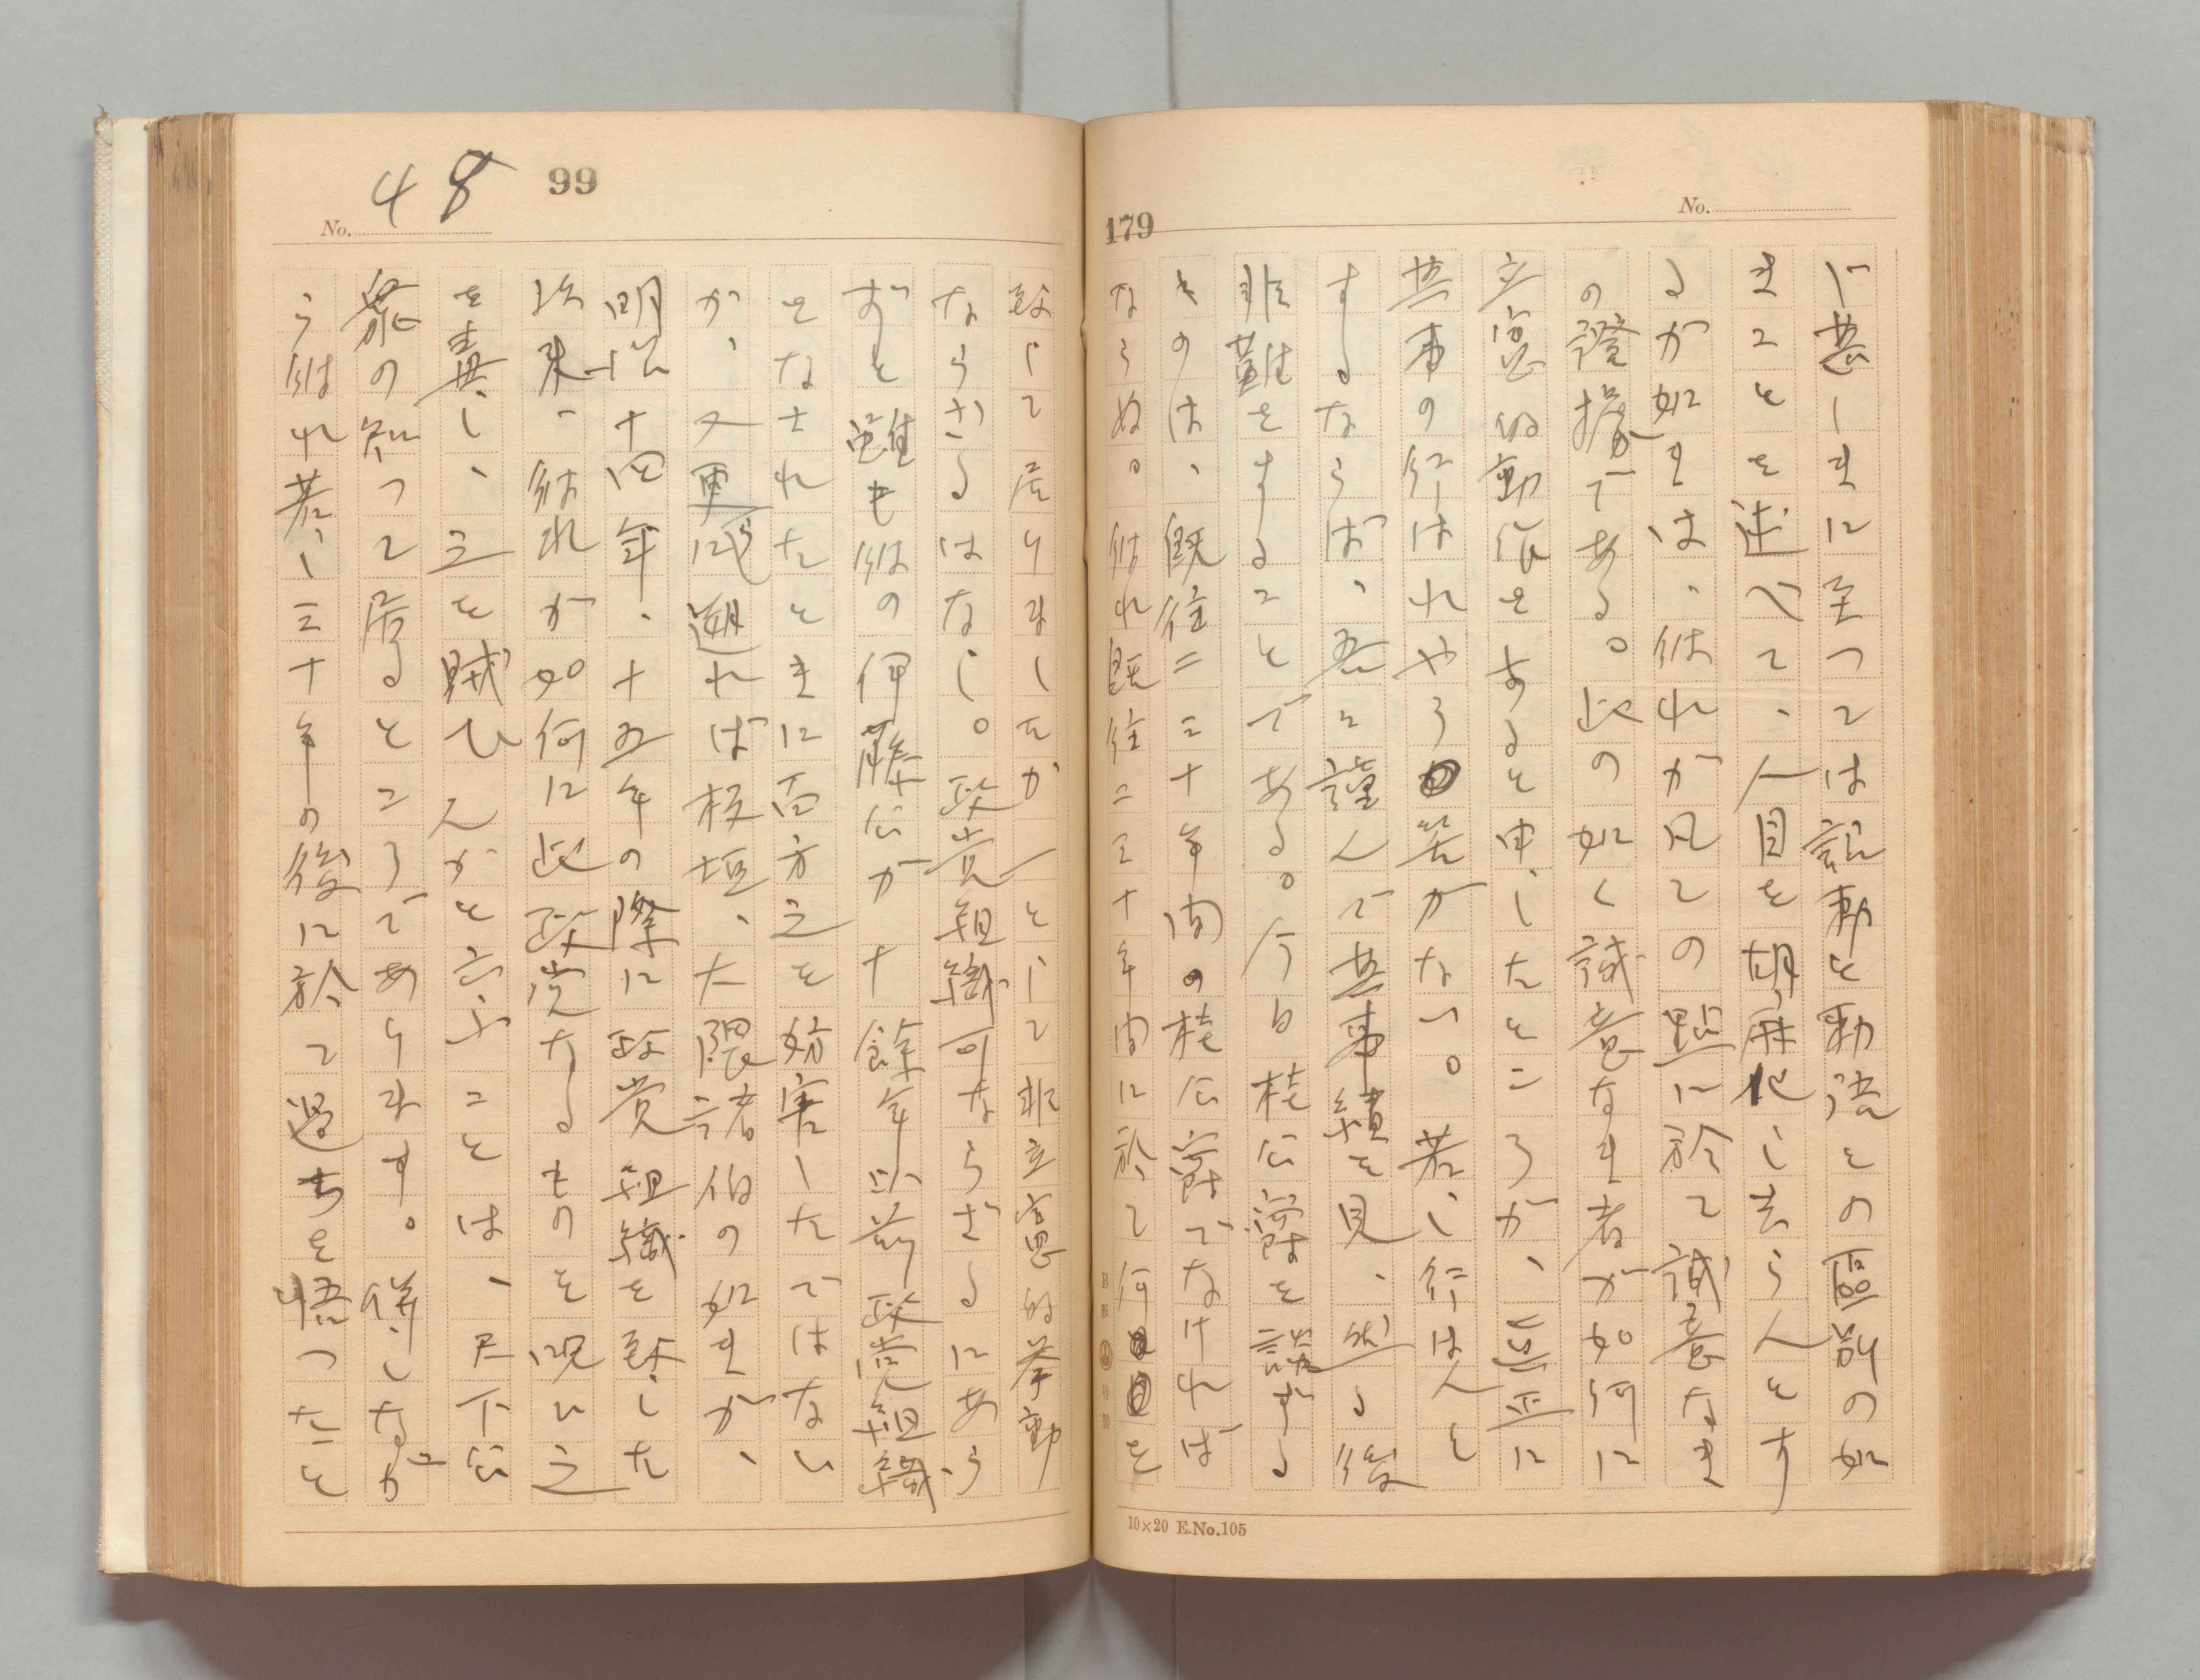 179
No.
ド甚しきに至つては詔勅と勅語との區別の如
きことを述べて、人目を胡麻化し去らんとす
るが如きは、彼れが凡ての點に於て誠意なき
の證據である。此の如く誠意なき者が如何に
立憲的動作をすると申したところが、真正に
其事の行はれやう筈がない。若し行はんと
するならば、吾々謹んで其事績を見、然る後
非難をすることである。今日桂公爵を論ずる
ものは、既往二三十年間の桂公爵でなければ
ならぬ。彼れ既往二三十年間に於て何を
10×20 E.No.105
99
No. 48
致して居りましたか一として非立憲的挙動
ならざるはなし。政党組織可ならざるにあら
ずと雖も彼の伊藤公が十餘年以前政党組織
をなされたときに百方之を妨害したではない
か、又更に遡れば板垣、大隈諸伯の如きが、
明治十四年、十五年の際に政党組織を致した
以来、彼れが如何に此政党なるものを呪ひ之
を毒し、之を賊ひんかと云ふことは、天下公
衆の知つて居るところであります。併しなが
ら彼れ若し三十年の後に於て過ちを悟つたこと